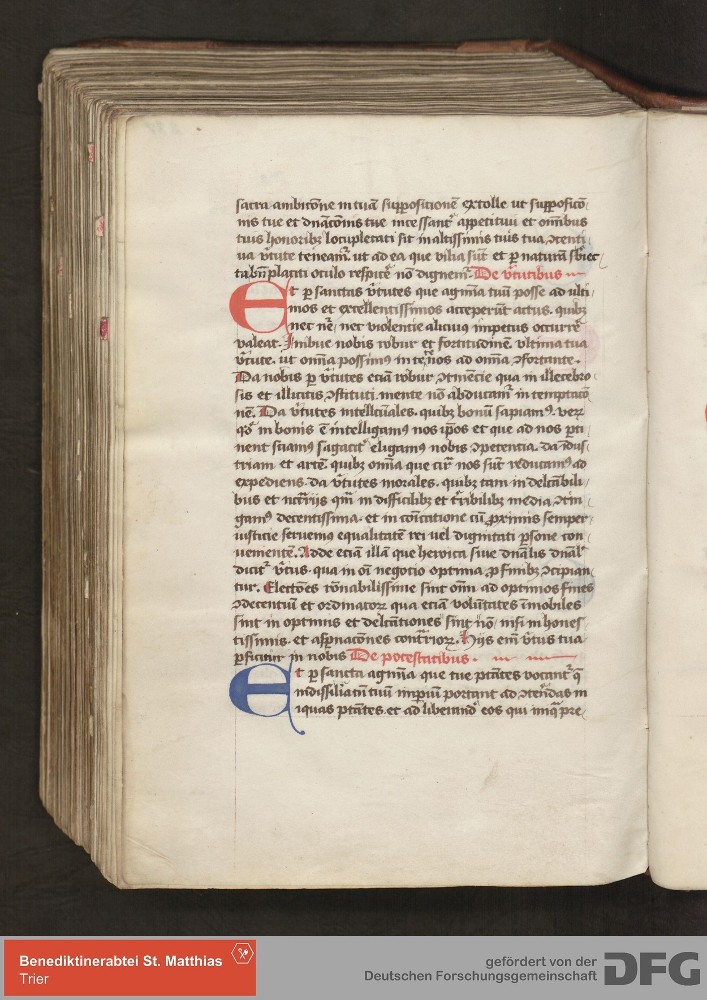 sacra ambitōne in tuā supposicionē extolle ut supposicō
nis tue et dn̄acōnis tue incessant᷑ appetitui et om̄ibus
tuis honoribꝫ locupletati sit in altissimis tuis tua ꝯtenti
ua v᷑tute teneam᷑. ut ad ea que vilia sūt et ꝑ naturā sb̄iec
ta bn̄placiti oculo respic᷑e nō dignem᷑. De v᷑tutibus
Et ꝑ sanctas v᷑tutes que agmīa tuū posse ad ulti
mos et excellentissimos acceperūt actus. quibꝫ
nec nr̄e nec violentie alicuius impetus occurr᷑e
valeat. Inibue nobis robur et fortitudinē ultima tua
v᷑tute. ut om̄ia possimꝰ in te nos ad om̄ia ꝯfortante.
Da nobis ꝑ v᷑tutes eciā robur ꝯtinēcie qua in illecebro
sis et illicitis ꝯstituti. mente nō abducam᷑ in temptacō
nē. Da v᷑tutes intellc̄uales. quibꝫ bonū sapiamꝰ. veꝝ
qd̓ in bonis ē intelligamꝰ nos ip̄os et que ad nos ꝑti
nent sciamꝰ sagacit᷑ eligamꝰ nobis ꝯpetencia. da īdus
triam et artē. quibꝫ om̄ia que cir᷑ nos sūt reducamꝰ ad
expediens. da v᷑tutes morales. quibꝫ tam in delcābili
bus et nct̄rijs qm̄ in difficilibꝫ et t᷑ribilibꝫ media ꝯtin
gamꝰ decentissima. et in cōīcatione cū ꝓximis semper
iusticie seruemus equalitatē rei uel dignitati ꝑsone con
uenientē. Adde eciā illā que heroica siue dn̄alis dn̄al᷑
dicit᷑ v᷑tus. qua in oī negotio optima, ꝓ finibꝫ ꝯcipian
tur. Electōes rōnabilissime sint om̄i ad optimos fines
ꝯdecentiū et ordinatoꝝ qua etiā volūtates īmobiles
sint in optimis et delcātiones sint nō nisi in hones
tissimis. et asꝑnacōnes contrarioꝝ. Hijs em̄ v᷑tus tua
ꝑficitur in nobis De potestatibus.
Et ꝑ sancta agmīa que tue ptātes vocant᷑ q̄
indissiliatū tuū imperiū portant ad ꝯtēndas in
iquas ptātes. et ad liberand᷑ eos qui iniq̄ pre
Benediktinerabtei St. Matthias
Trier
gefördert von der
Deutschen Forschungsgemeinschaft
DFG